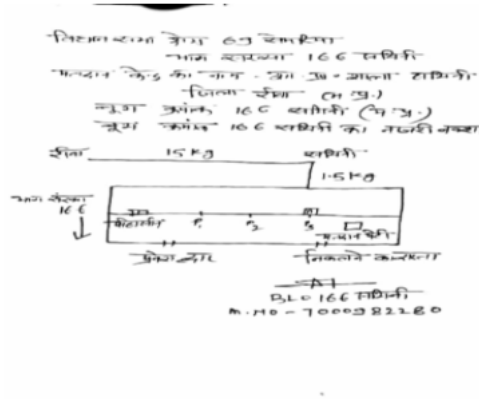 विधान सभा क्षेत्र 69 सेमरिया
भाग संख्या 166 सगिनी
मतदान केन्द्र का नाम - शा. प्रा. शाला सगिनी
जिला रीवा (म.प्र.)
बूथ क्रमांक 166 सगिनी (म.प्र.)
बूथ क्रमांक 166 सगिनी का नजरी नक्शा
रीवा 15 Kg सगिनी
1.5 Kg
भाग संख्या
166
P1 P2 P3
प्रवेश द्वार निकलने का रास्ता
BLO 166 सगिनी
M.NO - 7000982280